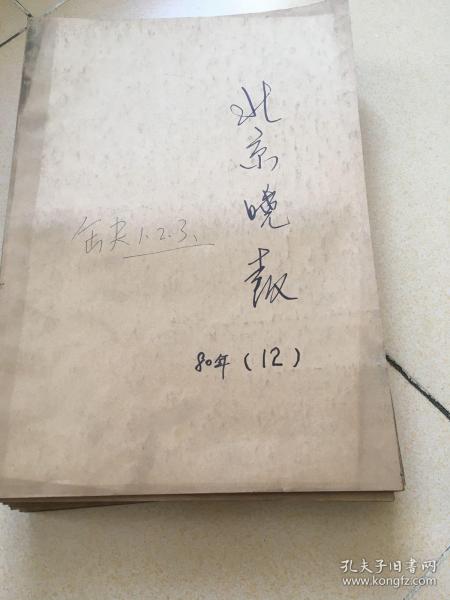 北京晚报
缺1.2.3.
80年（12）
孔夫子旧书网
www.kongfz.com